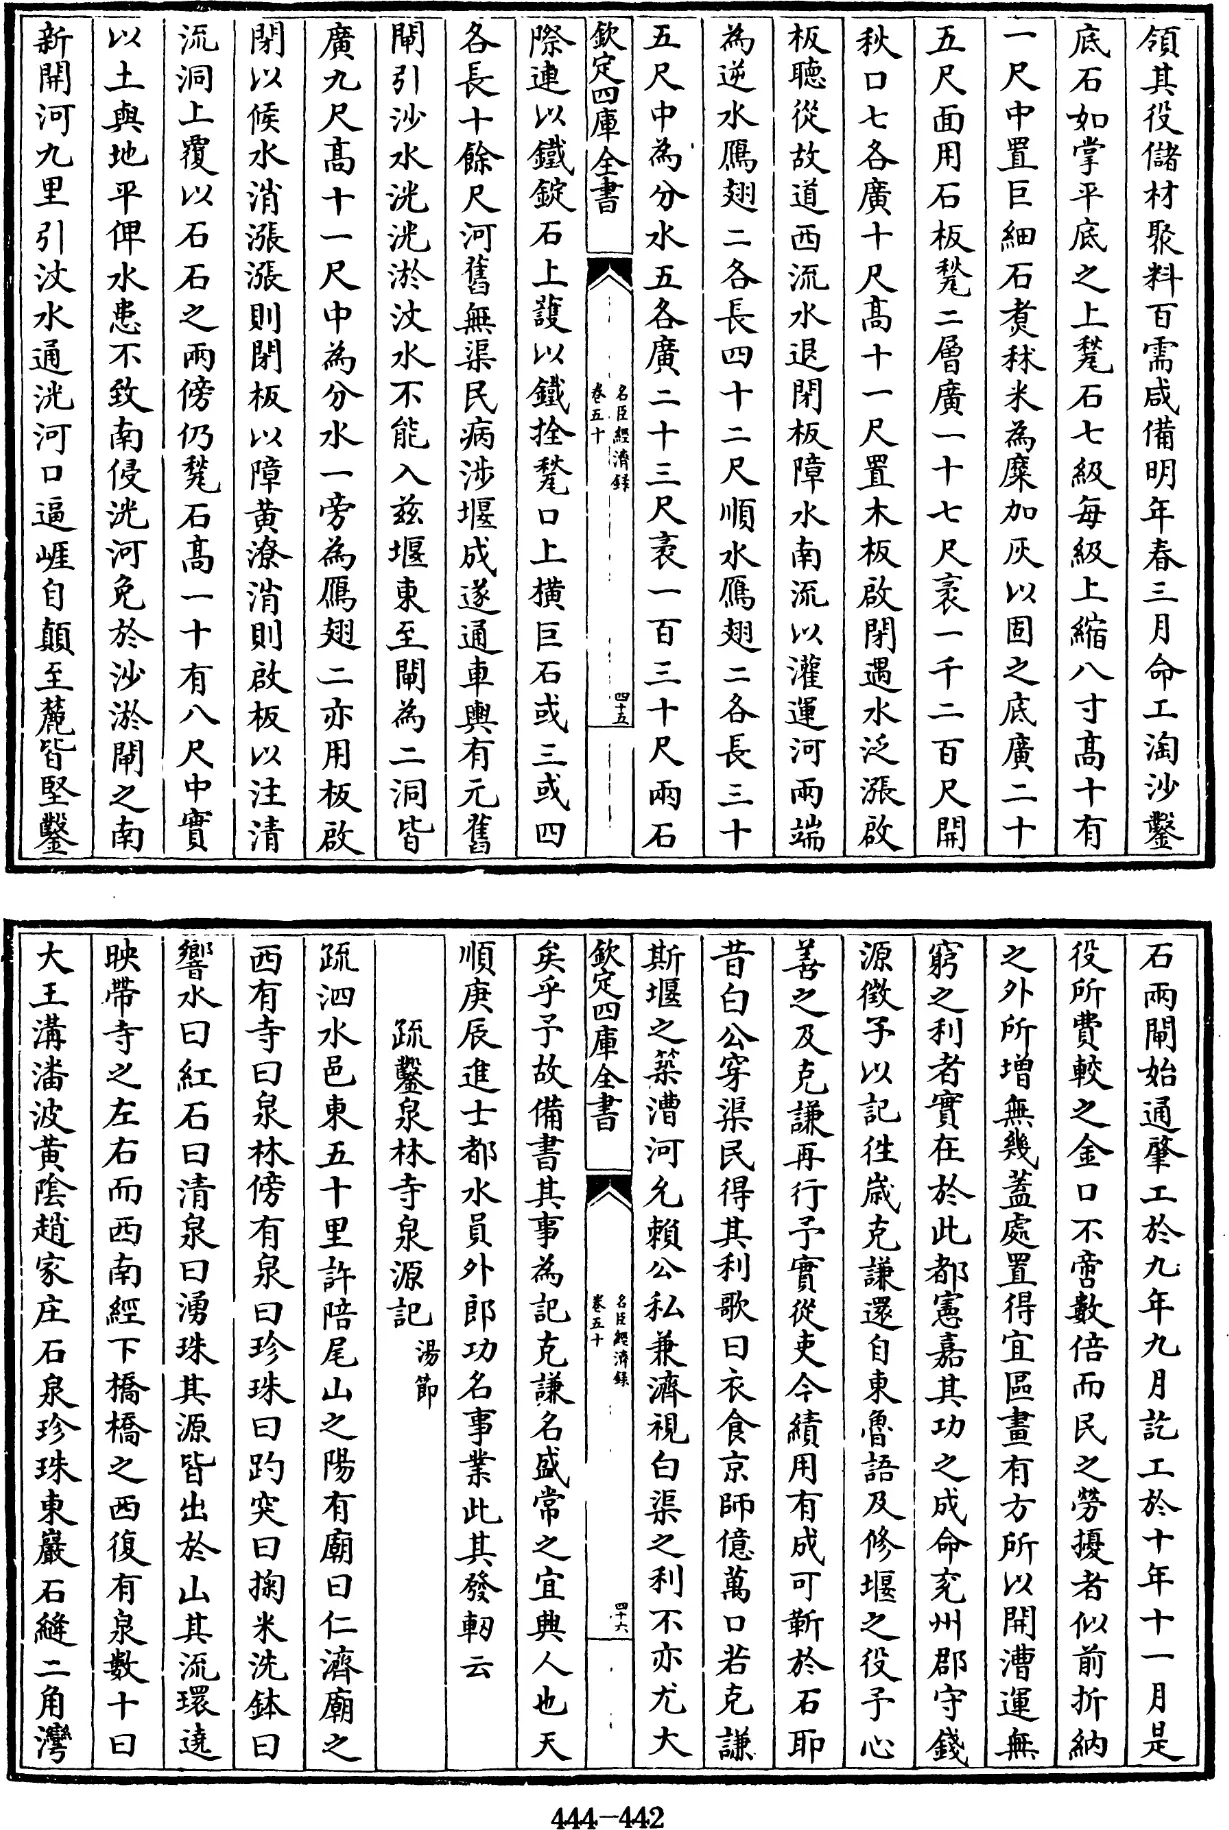 領其役儲材聚料百需咸備明年春三月命工淘沙鑿
底石如掌平底之上甃石七級每級上縮八寸高十有
一尺中置巨細石煮秫米為糜加灰以固之底廣二十
五尺面用石板甃二層廣一十七尺袤一千二百尺開
秋口七各廣十尺高十一尺置木板啟閉遇水泛漲啟
板聽從故道西流水退閉板障水南流以灌運河兩端
為逆水鴈翅二各長四十二尺順水鴈翅二各長三十
五尺中為分水五各廣二十三尺袤一百三十尺兩石
欽定四庫全書
名臣經濟録
卷五十
四十五
際連以鐵錠石上護以鐵拴甃口上橫巨石或三或四
各長十餘尺河舊無渠民病涉堰成遂通車輿有元舊
閘引沙水洸洸淤汶水不能入兹堰東至閘為二洞皆
廣九尺高十一尺中為分水一旁為鴈翅二亦用板啟
閉以候水消漲漲則閉板以障黄潦消則啟板以注清
流洞上覆以石石之兩傍仍甃石高一十有八尺中實
以土與地平俾水患不致南侵洸河免於沙淤閘之南
新開河九里引汶水通洸河口逼崕自顛至麓皆堅鑿
石兩閘始通肇工於九年九月訖工於十年十一月是
役所費較之金口不啻數倍而民之勞擾者似前折納
之外所增無幾蓋處置得宜區畫有方所以開漕運無
窮之利者實在於此都憲嘉其功之成命兖州郡守錢
源徴予以記徃嵗克謙還自東魯語及修堰之役予心
善之及克謙再行予實從吏今績用有成可靳於石耶
昔白公穿渠民得其利歌曰衣食京師億萬口若克謙
斯堰之築漕河允賴公私兼濟視白渠之利不亦尤大
欽定四庫全書
名臣經濟録
卷五十
四十六
矣乎予故備書其事為記克謙名盛常之宜興人也天
順庚辰進士都水員外郎功名事業此其發軔云
疏鑿泉林寺泉源記 湯節
疏泗水邑東五十里許陪尾山之陽有廟曰仁濟廟之
西有寺曰泉林傍有泉曰珍珠曰趵突曰掬米洗鉢曰
響水曰紅石曰清泉曰湧珠其源皆出於山其流環遶
映帶寺之左右而西南經下橋橋之西復有泉數十曰
大王溝潘波黄陰趙家庄石泉珍珠東巖石縫二角灣
444-442